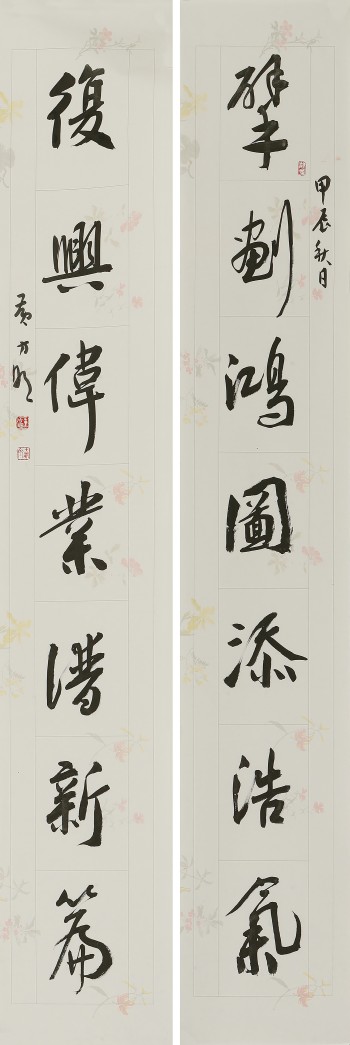 擘劃鴻圖添浩氣
甲辰秋月
復興偉業譜新篇
黄